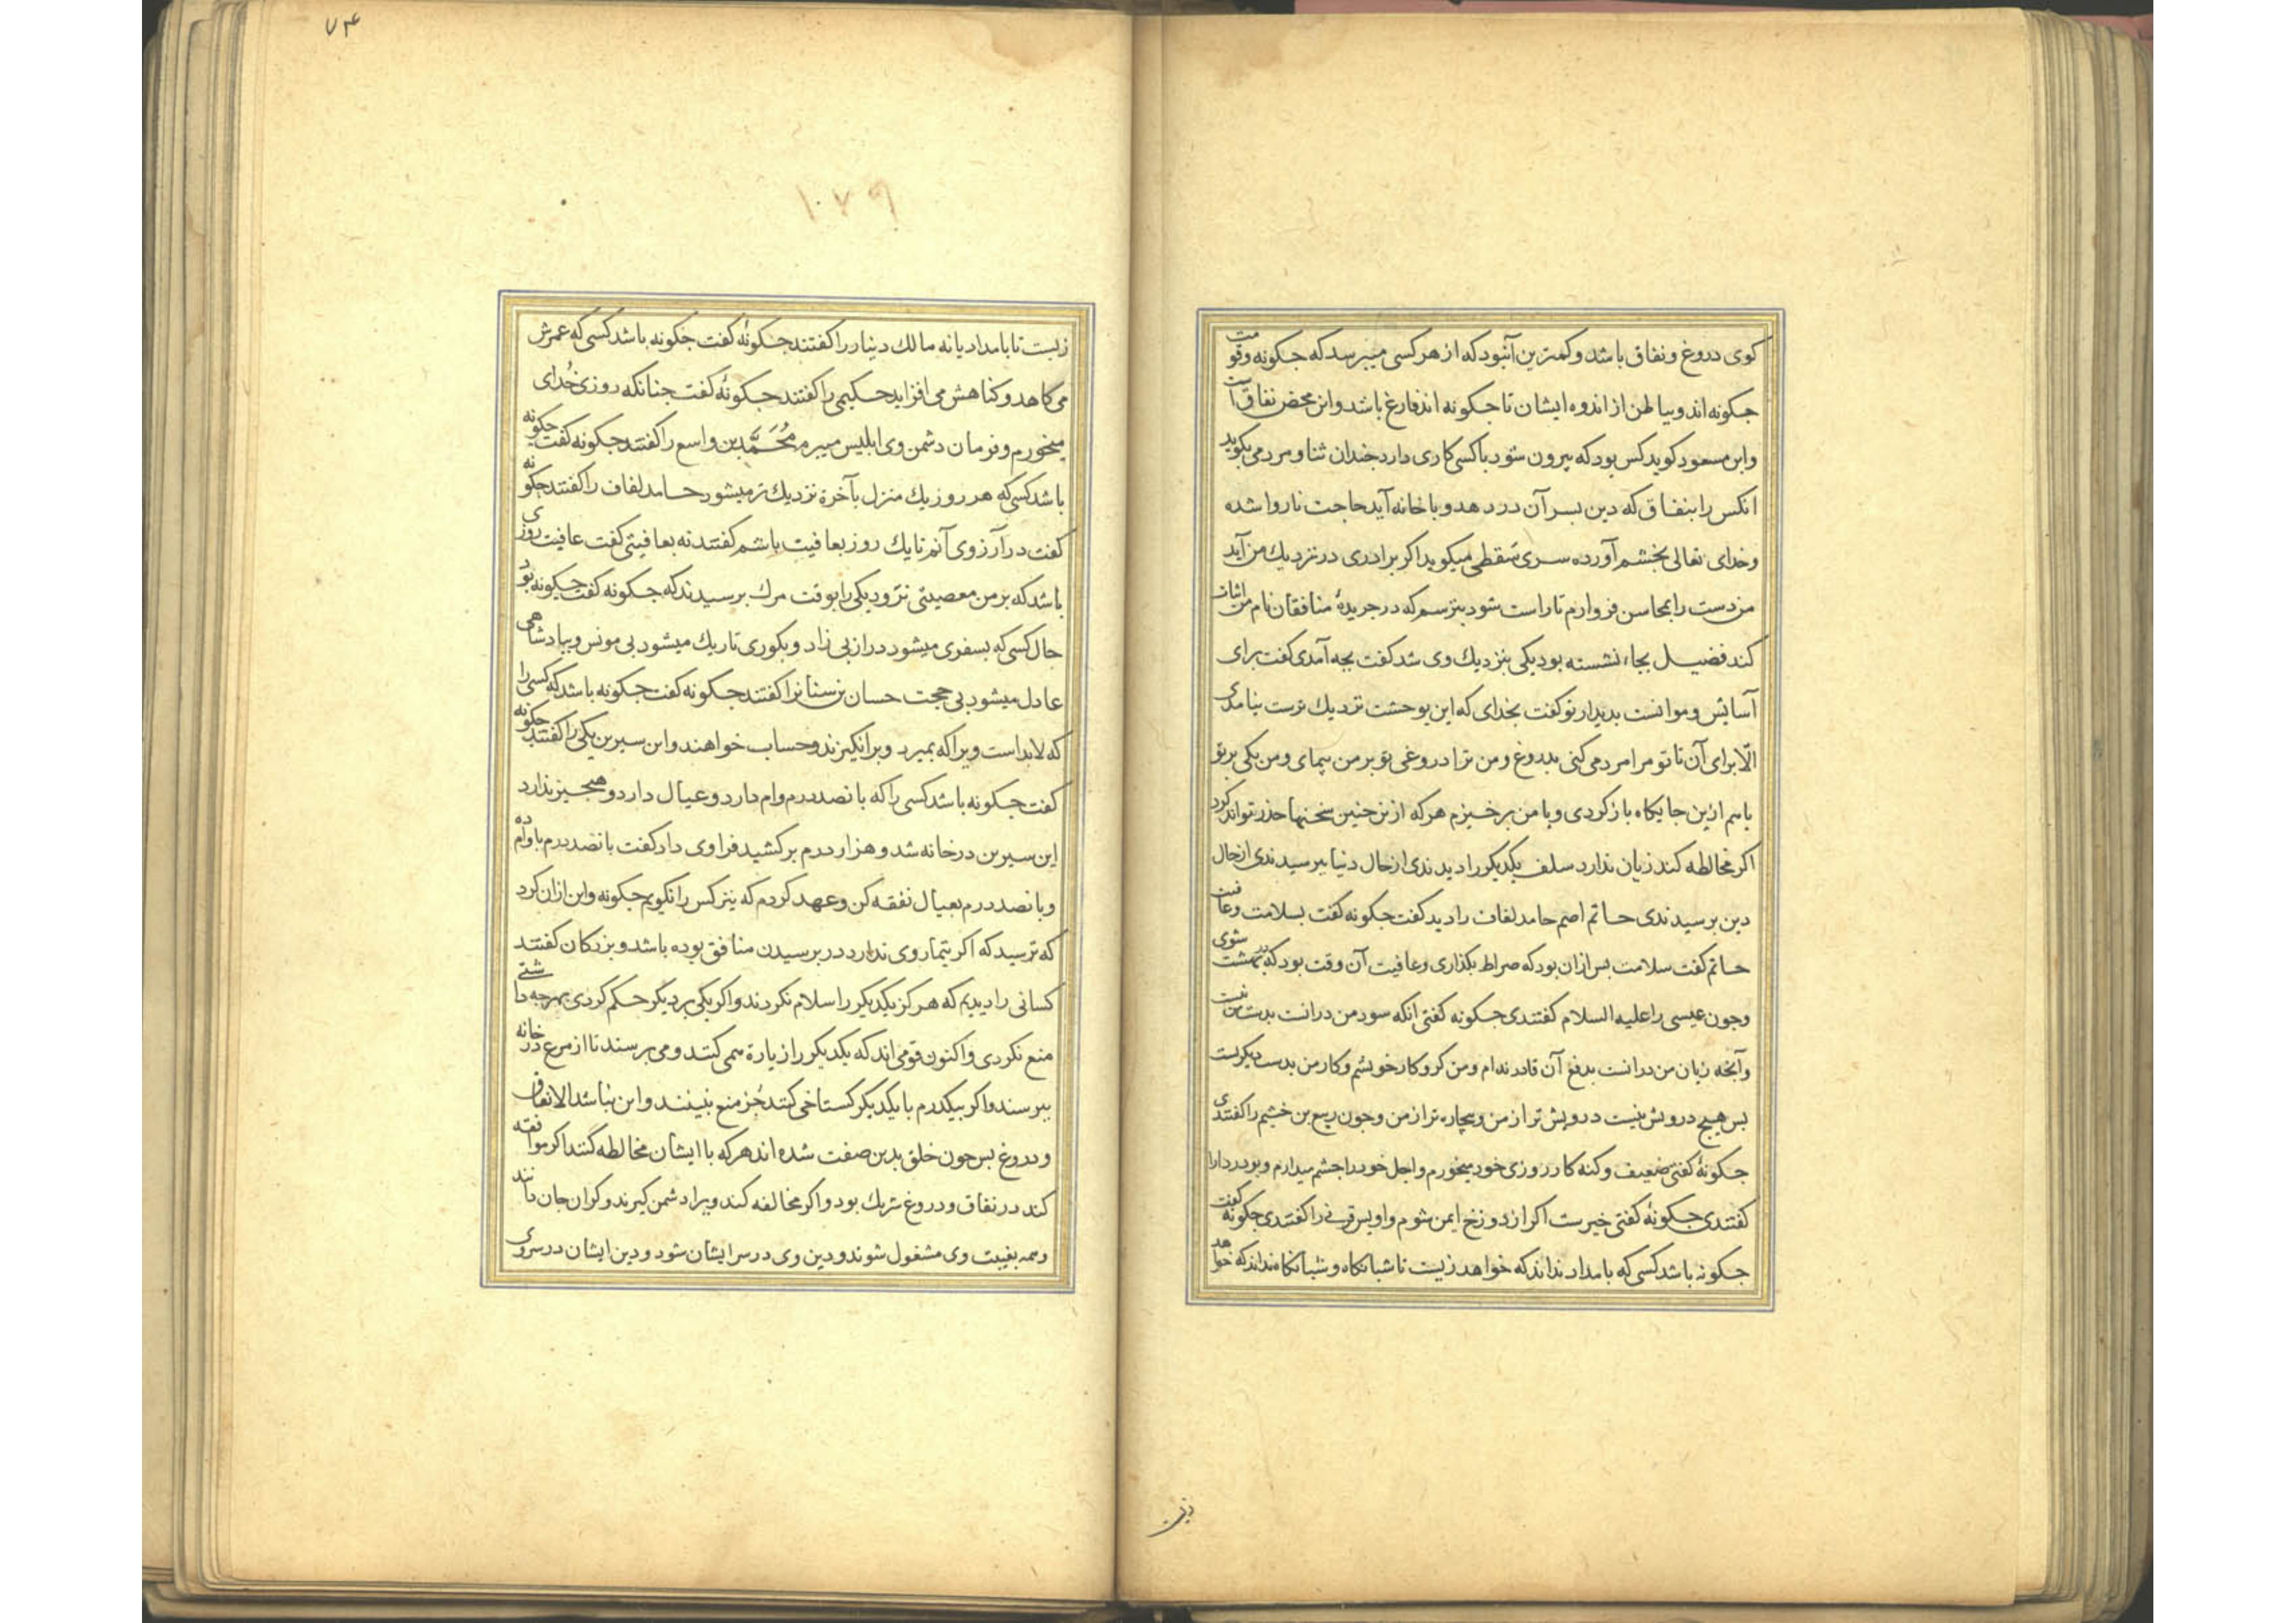 کوی دروغ ونفاق باشد وکمترین آنبود که از هر کسی میبرسد که جکونه وقومت
جکونه اند وبباطن از اندوه ایشان تا جکونه اند فارغ باشد واین محض نفاقست
وابن مسعود کوید کس بود که بیرون شود باکسی کاری دارد جندان ثنا ومردمی بکوید
انکس را بنفاق که دین بسر آن دردهد وبا خانه آید حاجت ناروا شده
وخدای تعالی بخشم آورده سری سقطی میکوید اکر برادری در نزدیك من آید
من دست را بمحاسن فرو ارم تا راست شود بترسم که در جریدهٔ منافقان نام من اثبات
کند فضیل بجاء نشسته بود یکی بنزدیك وی شد کفت بجه آمدی کفت برای
آسایش وموانست بدیدار تو کفت بخدای که این بوحشت نزدیك ترست بنیامدی
الّا برای آن تا تو مرا مردمی کنی بدروغ ومن ترا دروغی تو بر من بیمای ومن یکی بر تو
یا هم ازین جایکاه باز کردی ویا من برخیزم هر که از نزجنین سخنها حذر تواند کرد
اکر مخالطه کند زیان ندارد سلف یکدیکر را دیدندی از حال دنیا ببرسیدندی از حال
دین برسیدندی حاتم اصم حامد لفاف را دید کفت جکونه کفت بسلامت وعافیت
حاتم کفت سلامت بس ازان بود که صراط بکذاری وعافیت آن وقت بود که در بهشت شوی
وجون عیسی را علیه السلام کفتندی جکونه کفتی انکه سود من درانست بدست من نیست
وآنجه زیان من درانست بدفع آن قادر نه ام ومن کرو کار خویشم وکار من بدست دیکریست
بس هیج درویش نیست درویش تر از من وبیجاره تر از من وجون ربیع بن خثیم را کفتندی
جکونهٔ کفتی ضعیف وکنه کار روزی خود میخورم واجل خود را جشم میدارم وبودردا را
کفتندی جکونهٔ کفتی خیرست اکر از دوزخ ایمن شوم واویس قرنی را کفتندی جکونهٔ کفت
جکونه باشد کسی که بامداد نداند که خواهد زیست تا شبانکاه وشبانکاه نداند که خواهد
زیست
٧۴
١٠٧٩
زیست تا بامداد یا نه مالك دینار را کفتند جکونهٔ کفت جکونه باشد کسی که عمرش
می کاهد وکناهش می افزاید حکیمی را کفتند جکونهٔ کفت جنانکه روزی خُدای
میخورم وفرمان دشمن وی ابلیس میبرم مُحَمَّد بن واسع را کفتند جکونه کفت جکونه
باشد کسی که هر روز یك منزل بآخرة نزدیك تر میشود حامد لفاف را کفتند جکونه
کفت در آرزوی آنم تا یك روز بعافیت باشم کفتند نه بعافیتی کفت عافیت روزی
باشد که بر من معصیتی نرود یکی را بوقت مرك برسیدند که جکونه کفت جکونه بود
حال کسی که بسفری میشود دراز بی زاد وبکوری تاریك میشود بی مونس وببادشاهی
عادل میشود بی حجت حسان بن سنان را کفتند جکونه کفت جکونه باشد که کسی را
که لابد است ویرا که بمیرد وبرانکیزند وحساب خواهند وابن سیرین یکی را کفتند جکونه
کفت جکونه باشد کسی را که بانصد درم وام دارد وعیال دارد وهیجیز ندارد
ابن سیرین در خانه شد وهزار درم برکشید فراوی داد کفت بانصد درم باوام ده
وبانصد درم بعیال نفقه کن وعهد کردم که نیز کس را نکویم جکونه واین ازان کرد
که ترسید که اکر تیمار وی ندارد در برسیدن منافق بوده باشد وبزرکان کفتند
کسانی را دیدیم که هرکز یکدیکر را سلام نکردند واکر یکی بر دیکر حکم کردی بهرجه داشتی
منع نکردی واکنون قومی اند که یکدیکر را زیارة همی کنند ومی برسند تا از مرغ در خانه
ببرسند واکر بیکدرم با یکدیکر کستاخی کنند جُز منع نبینند واین نباشد الا نفاق
ودروغ بس جون خلق بدین صفت شده اند هر که با ایشان مخالطه کند اکر موافقه
کند در نفاق ودروغ شریك بود واکر مخالفه کند ویرا دشمن کیرند وکران جان دانند
وهمه بغیبت وی مشغول شوند ودین وی در سر ایشان شود ودین ایشان در سر وی